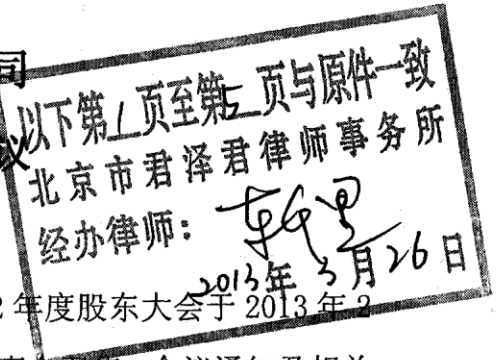 司
议
以下第1页至第5页与原件一致
北京市君泽君律师事务所
经办律师：
2013年3月26日
2年度股东大会于 2013 年 2